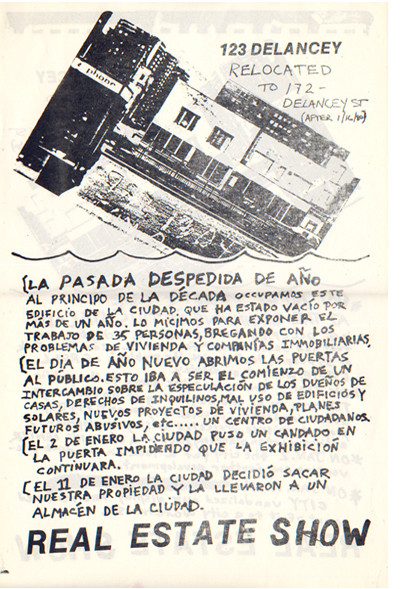 phone
123 DELANCEY
RELOCATED
TO 172-
DELANCEY ST
(AFTER 1/16/80)
(LA PASADA DESPEDIDA DE AÑO
AL PRINCIPO DE LA DÉCADA OCCUPAMOS ESTE
EDIFICIO DE LA CIUDAD QUE HA ESTADO VACÍO POR
MÁS DE UN AÑO. LO HICIMOS PARA EXPONER EL
TRABAJO DE 35 PERSONAS, BREGANDO CON LOS
PROBLEMAS DE VIVIENDA Y COMPAÑIAS IMMOBILIARIAS.
(EL DIA DE AÑO NUEVO ABRIMOS LAS PUERTAS
AL PUBLICO. ESTO IBA A SER EL COMIENZO DE UN
INTERCAMBIO SOBRE LA ESPECULACIÓN DE LOS DUEÑOS DE
CASAS, DERECHOS DE INQUILINOS, MAL USO DE EDIFICIOS Y
SOLARES, NUEVOS PROYECTOS DE VIVIENDA, PLANES
FUTUROS ABUSIVOS, etc..... UN CENTRO DE CIUDADANOS.
(EL 2 DE ENERO LA CIUDAD PUSO UN CANDADO EN
LA PUERTA IMPIDIENDO QUE LA EXHIBICIÓN
CONTINUARA.
(EL 11 DE ENERO LA CIUDAD DECIDIÓ SACAR
NUESTRA PROPIEDAD Y LA LLEVARON A UN
ALMACÉN DE LA CIUDAD.
REAL ESTATE SHOW